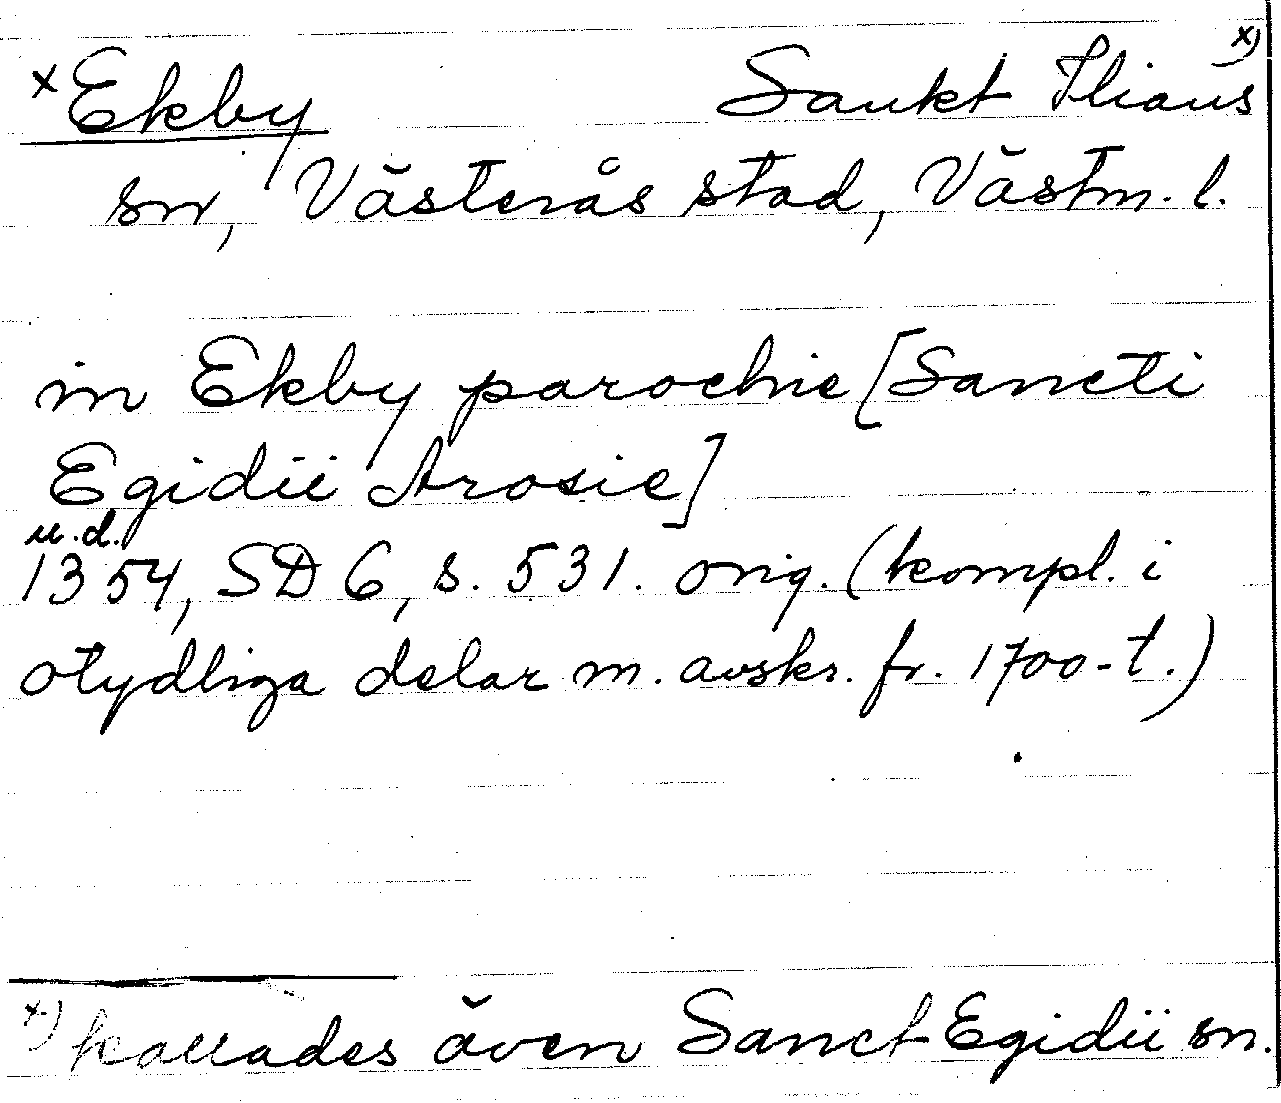 ×Ekby Sankt Ilians ×)
sn, Västerås stad, Västm. l.
in Ekby parochie [Sancti
Egidii Arosie]
u.d.
1354, SD 6, s. 531. orig. (kompl. i
otydliga delar m. avskr. fr. 1700-t.)
×) kallades även Sanct Egidii sn.